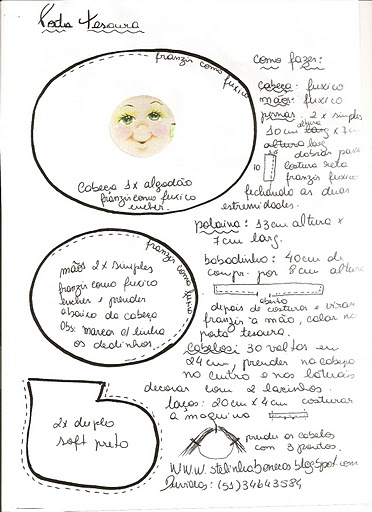 Porta Tesoura
franzir como fuxico
Cabeça 1x algodão
franzir como fuxico
encher.
mãos 2x simples
franzir como fuxico
encher e prender
abaixo da cabeça
Obs: marcar c/ linha
os dedinhos
franzir como fuxico
2x duplo
soft preto
como fazer:
cabeça: fuxico
mãos: fuxico
pernas 2x simples
altura
10cm larg x 7cm
altura larg
dobrar para
10
costura reta
franzir fuxico
fechando as duas
extremidades.
polaina: 13cm altura x
7cm larg.
babadinho: 40cm de
compr. por 8cm altura
aberto
depois de costurar e virar
franzir a mão, colar no
porta tesoura.
cabelos: 30 voltas em
24cm, prender na cabeça
no centro e nas laterais
decorar com 2 lacinhos.
laços: 20cm x 4cm costurar
a maquina
prender os cabelos
com 3 pontos.
www.stelinhabonecas.blogspot.com
Duvidas: (51) 34643584